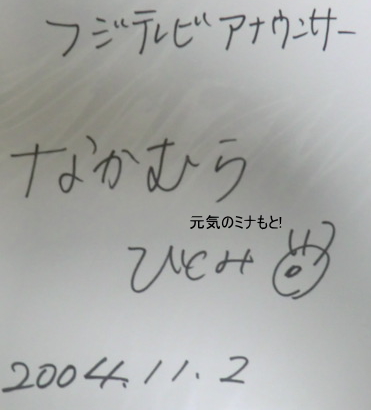 フジテレビアナウンサー
なかむら
元気のミナもと!
ひとみ
2004.11.2